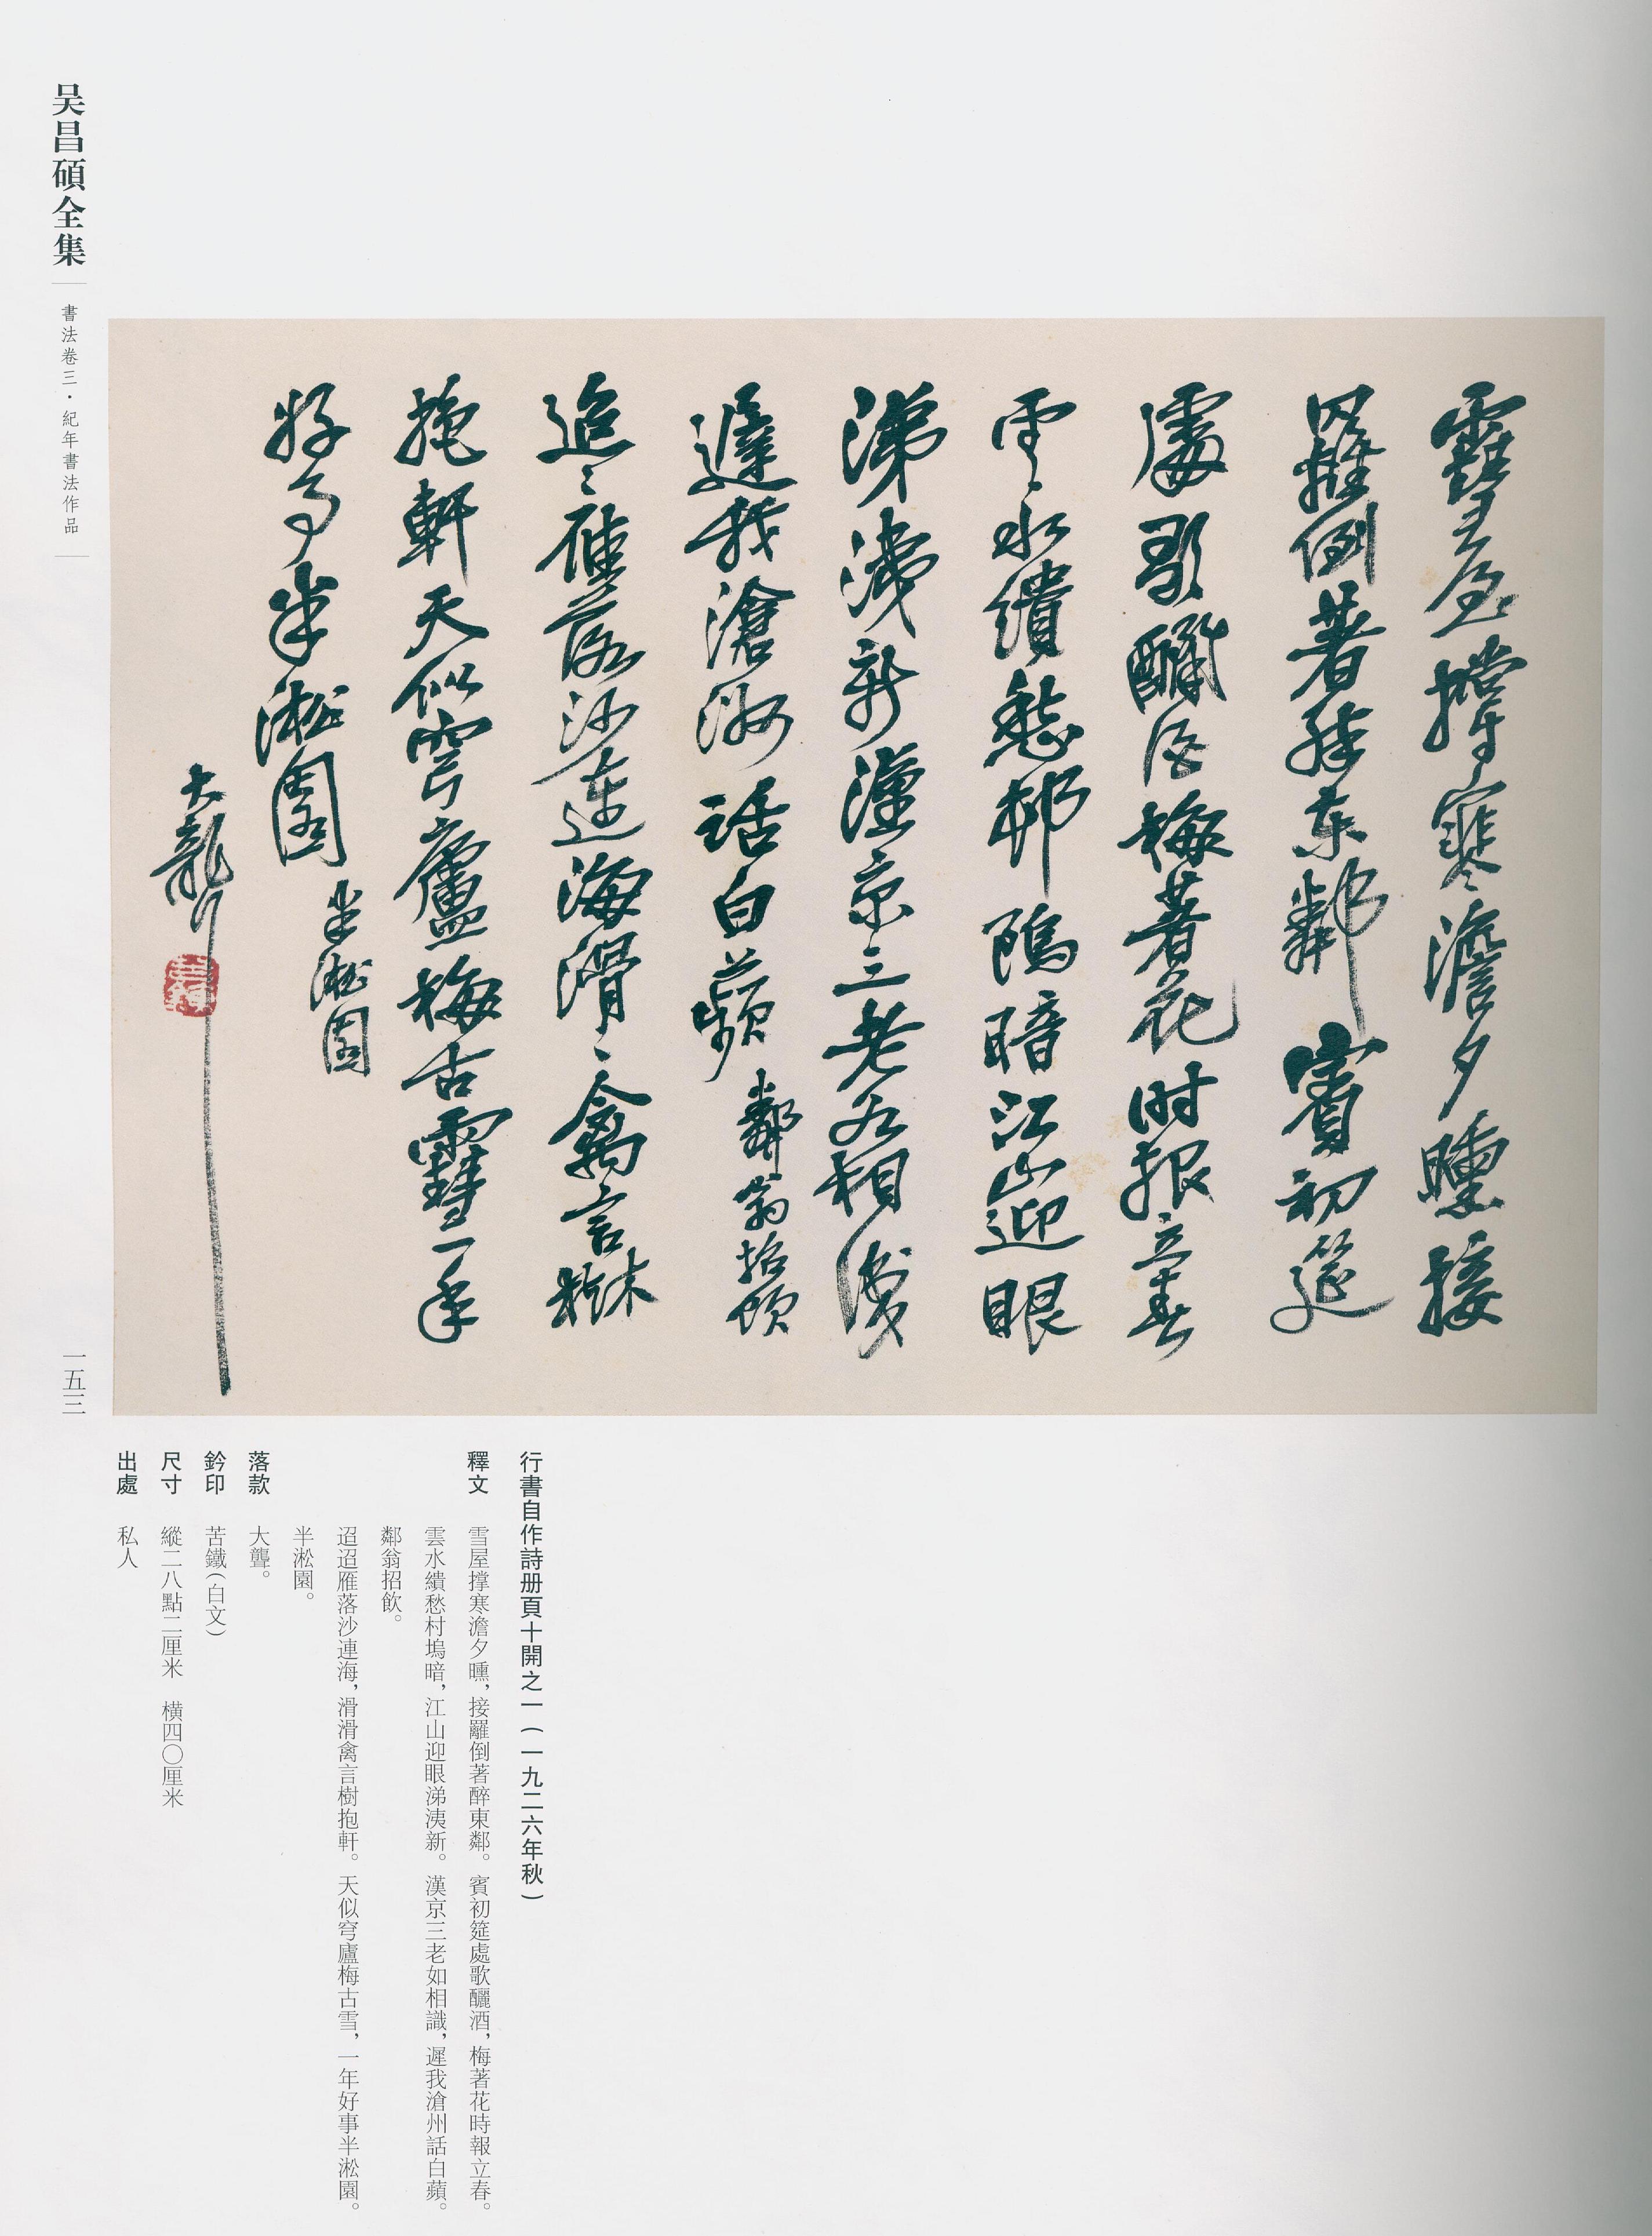 雪屋撑寒澹夕曛接
羅倒著醉東鄰賓初筵
處歌釃酒梅著花時報立春
雲水繢愁邨隖暗江山迎眼
涕洟新漢京三老如相識
遲我滄州話白蘋 鄰翁招飲
迢〻雁落沙連海滑〻禽言樹
抱軒天似穹廬梅古雪一年
好事半淞園 半淞園
大聾
吴昌碩全集
書法卷三·紀年書法作品
一五三
行書自作詩册頁十開之一(一九二六年秋)
釋文 雪屋撑寒澹夕曛,接羅倒著醉東鄰。賓初筵處歌釃酒,梅著花時報立春。
雲水繢愁村塢暗,江山迎眼涕洟新。漢京三老如相識,遲我滄州話白蘋。
鄰翁招飲。
迢迢雁落沙連海,滑滑禽言樹抱軒。天似穹廬梅古雪,一年好事半淞園。
半淞園。
落款 大聾。
鈐印 苦鐵(白文)
尺寸 縱二八點二厘米 橫四〇厘米
出處 私人